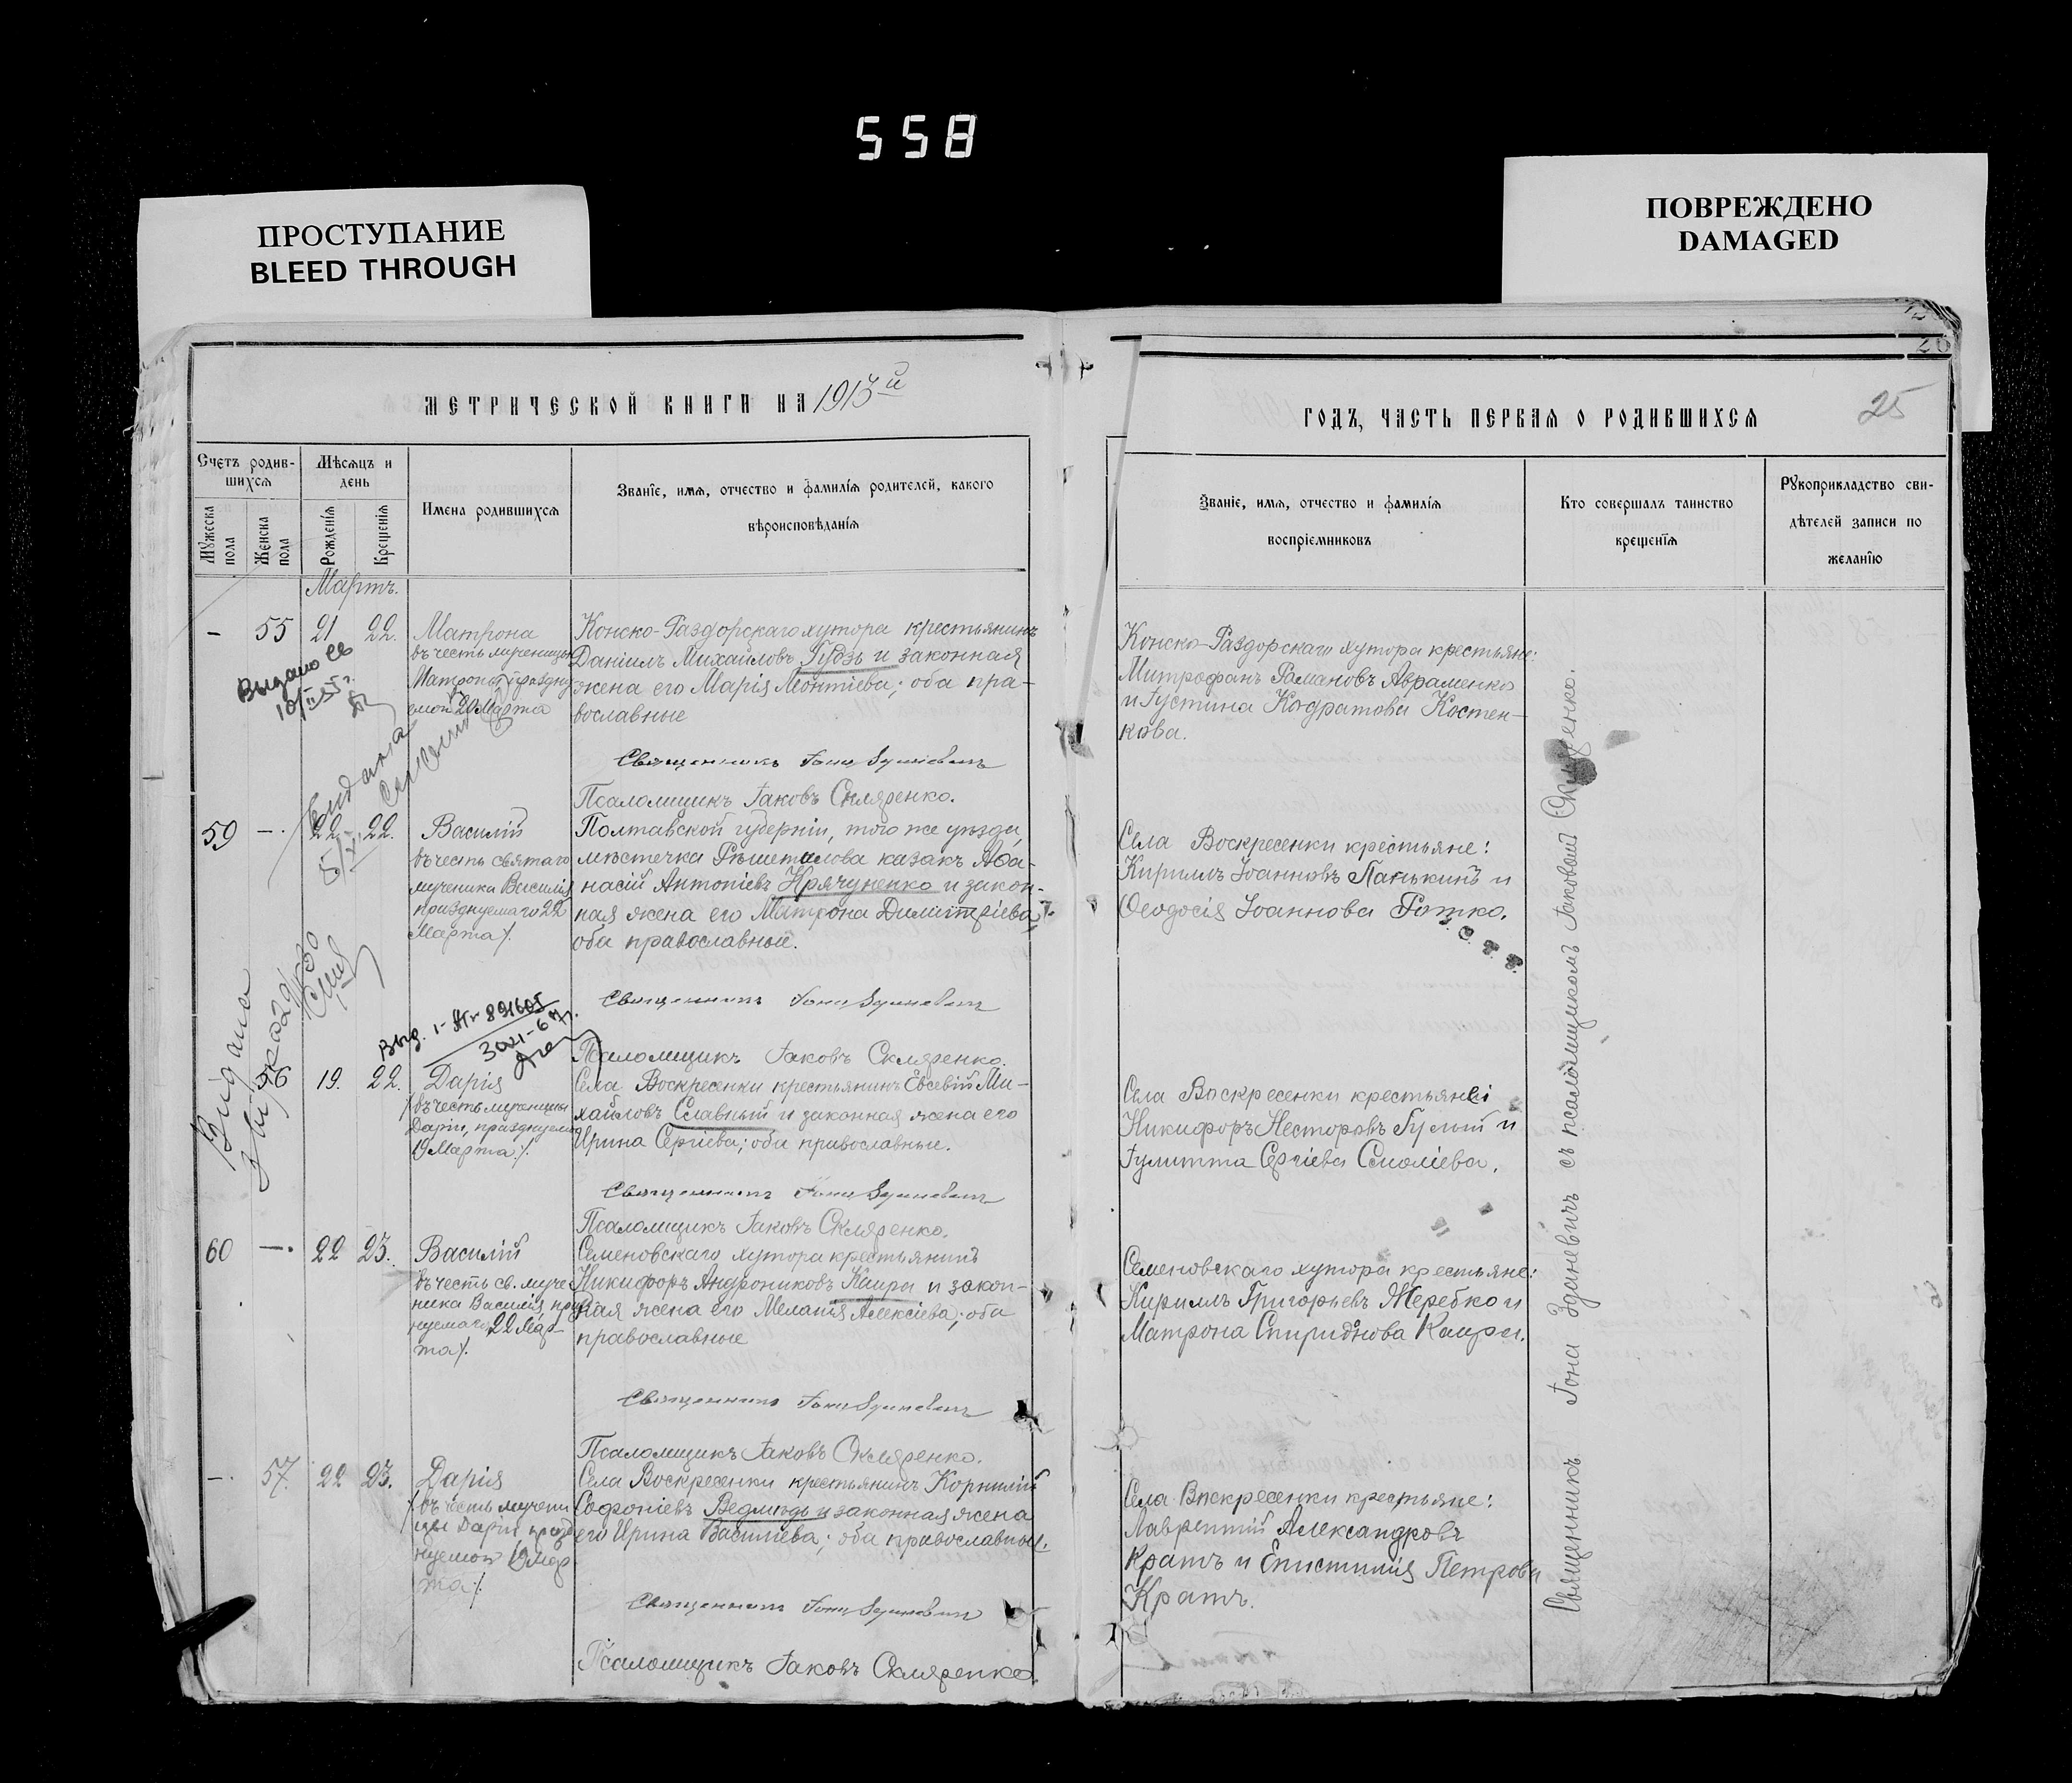 558
ПРОСТУПАНИЕ
BLEED THROUGH
ПОВРЕЖДЕНО
DAMAGED
МЕТРИЧЕСКОЙ КНИГИ НА 1913й
ГОДЪ, ЧАСТЬ ПЕРВАЯ О РОДИВШИХСЯ
25
26
Счетъ родив-
шихся
Мужеска
пола
Женска
пола
Мѣсяцъ и
день
Рожденія
Крещенія
Имена родившихся
Званіе, имя, отчество и фамилія родителей, какого
вѣроисповѣданія
Званіе, имя, отчество и фамилія
воспріемниковъ
Кто совершалъ таинство
крещенія
Рукоприкладство сви-
дѣтелей записи по
желанію
Мартъ.
– 55 21 22.
Матрона
въ честь мученицы
Матроны праздну
емой 20 Марта
Конско-Раздорскаго хутора крестьянинъ
Даніилъ Михайловъ Гудзь и законная
жена его Марія Леонтіева; оба пра-
вославные
Священникъ Іона Зданевичъ
Псаломщикъ Іаковъ Скляренко.
Конско-Раздорскаго хутора крестьяне:
Митрофанъ Романовъ Авраменко
и Іустина Кодратова Костен-
кова.
Выдано св
59 –. 22 22.
Василій
въ честь святаго
мученика Василія
празднуемаго 22
Марта/.
Полтавской губерніи, того же уѣзда,
мѣстечка Рѣшетилова казакъ Аѳа-
насій Антоніевъ Крячуненко и закон-
ная жена его Матрона Димитріева,
оба православные.
Священникъ Іона Зданевичъ
Псаломщикъ Іаковъ Скляренко.
Села Воскресенки крестьяне:
Кириллъ Іоанновъ Панькинъ и
Ѳеодосія Іоаннова Ротко.
Видана
56 19. 22.
Дарія
/въ честь мученицы
Даріи, празднуемой
19 Марта/.
Села Воскресенки крестьянинъ Евсевій Ми-
хайловъ Славный и законная жена его
Ирина Сергіева; оба православные.
Священникъ Іона Зданевичъ
Псаломщикъ Іаковъ Скляренко.
Села Воскресенки крестьяне:
Никифоръ Несторовъ Гулый и
Іулитта Сергіева Смоліева.
60 –. 22 23.
Василій
/въ честь св. муче
ника Василія праз
нуемаго 22 Мар-
та/.
Семеновскаго хутора крестьянинъ
Никифоръ Андрониковъ Каира и закон-
ная жена его Меланія Алексіева; оба
православные
Священникъ Іона Зданевичъ
Псаломщикъ Іаковъ Скляренко.
Семеновскаго хутора крестьяне:
Кириллъ Григорьевъ Жеребко и
Матрона Спиридонова Каира.
–. 57. 22 23.
Дарія
/въ честь мучени
цы Даріи празд
нуемой 19 Мар
та/.
Села Воскресенки крестьянинъ Корнилій
Софроніевъ Ведмидь и законная жена
его Ирина Василіева; оба православные.
Священникъ Іона Зданевичъ
Псаломщикъ Іаковъ Скляренко.
Села Воскресенки крестьяне:
Лаврентій Александровъ
Кратъ и Епистимія Петрова
Кратъ.
Священникъ Іона Зданевичъ съ псаломщикомъ Іаковомъ Скляренко.